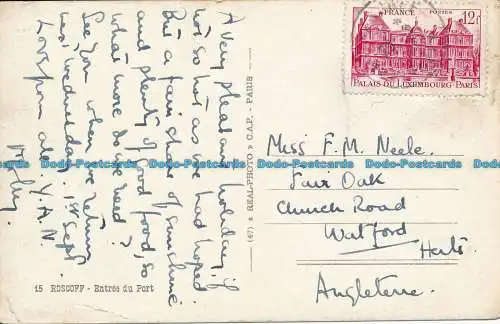 A very pleasant holiday, if
not so hot as we had hoped.
But a fair share of sunshine
and plenty of good food, so
what more do we need?
See you when we return
next Wednesday. 1st Sept.
Love from all. Y.A.N.
15 ROSCOFF - Entrée du Port
(47) « REAL-PHOTO » C.A.P. - PARIS
FRANCE POSTES 12F
PALAIS DU LUXEMBOURG PARIS
Miss F. M. Neele.
Fair Oak
Church Road
Watford
Herts
Angleterre.
Bodo-Postcards Bodo-Postcards Bodo-Postcards Bodo-Postcards